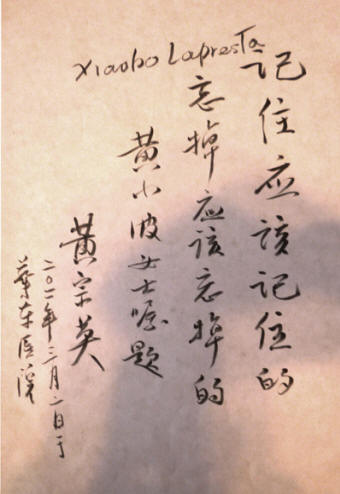 Xiaobo Lapresta
记住应该记住的
忘掉应该忘掉的
黄小波女士嘱题
黄宗英
月二日于
华东医院